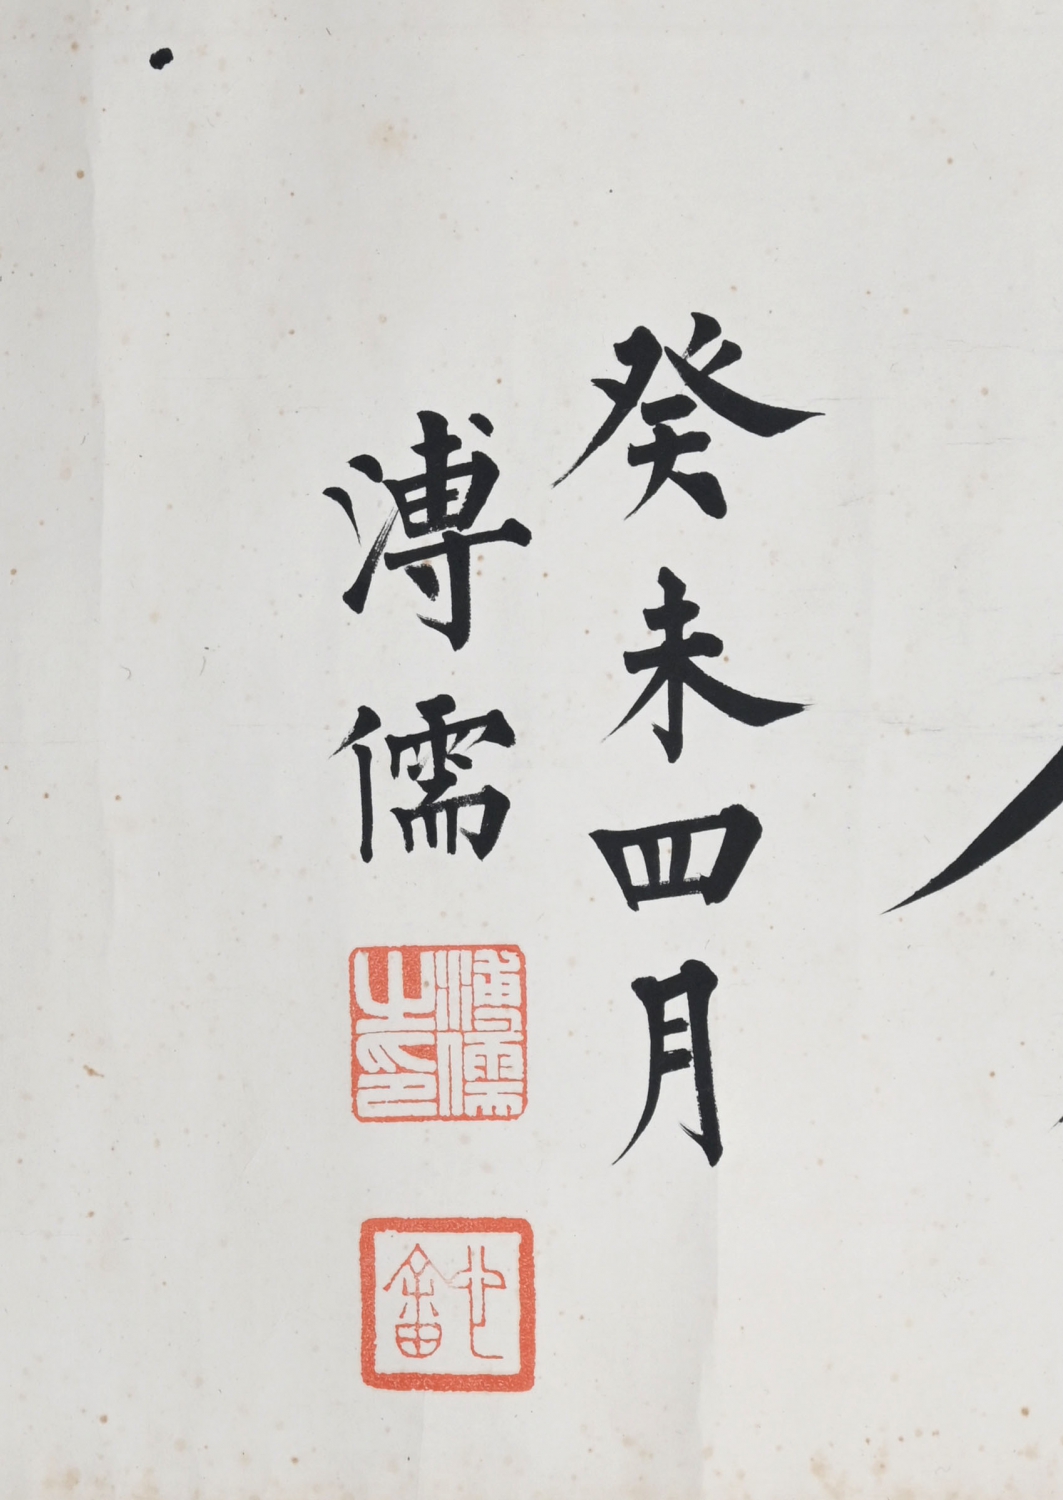 癸未四月
溥儒
溥儒之印